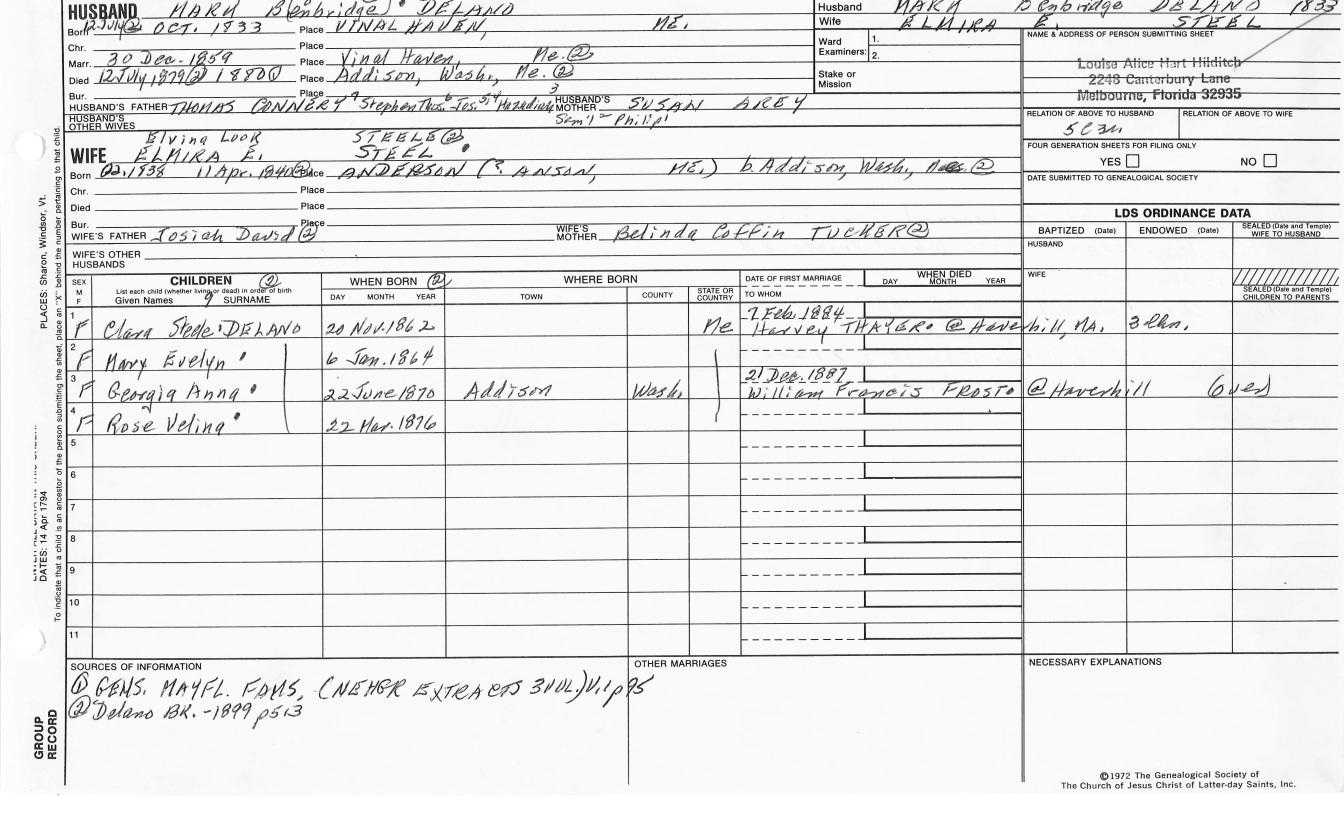 HUSBAND MARK B(enbridge) DELANO
Born 12 July ② OCT. 1833 Place VINAL HAVEN, ME.
Chr. Place
Marr. 30 Dec. 1859 Place Vinal Haven, Me. ②
Died 12 July 1879 ② 1880 ① Place Addison, Wash., Me. ②
Bur. Place
HUSBAND'S FATHER THOMAS CONNERY Stephen Thos. Jos. Hazadiah Sam'l Philip HUSBAND'S MOTHER SUSAN AREY
HUSBAND'S OTHER WIVES
Elvina Look STEELE ②
WIFE ELMIRA E. STEEL
Born 1838 11 Apr. 1840 ② Place ANDERSON (? ANSON, ME.) b. Addison, Wash., ②
Chr. Place
Died Place
Bur. Place
WIFE'S FATHER Josiah David ② WIFE'S MOTHER Belinda Coffin TUCKER ②
WIFE'S OTHER HUSBANDS
Husband MARK Benbridge DELANO 1833
Wife ELMIRA E. STEEL
Ward Examiners: 1. 2.
Stake or Mission
NAME & ADDRESS OF PERSON SUBMITTING SHEET
Louise Alice Hart Hilditch
2248 Canterbury Lane
Melbourne, Florida 32935
RELATION OF ABOVE TO HUSBAND RELATION OF ABOVE TO WIFE
FOUR GENERATION SHEETS FOR FILING ONLY
YES NO
DATE SUBMITTED TO GENEALOGICAL SOCIETY
LDS ORDINANCE DATA
BAPTIZED (Date) ENDOWED (Date) SEALED (Date and Temple) WIFE TO HUSBAND
HUSBAND
WIFE
SEALED (Date and Temple) CHILDREN TO PARENTS
SEX M F CHILDREN ② List each child (whether living or dead) in order of birth Given Names SURNAME
WHEN BORN ② DAY MONTH YEAR
WHERE BORN TOWN COUNTY STATE OR COUNTRY
DATE OF FIRST MARRIAGE TO WHOM
WHEN DIED DAY MONTH YEAR
1 F Clara Steele DELANO 20 Nov. 1862 Me 7 Feb. 1884 Harvey THAYER @ Haverhill, MA. 3 chn.
2 F Mary Evelyn 6 Jan. 1864
3 F Georgia Anna 22 June 1870 Addison Wash. 21 Dec. 1887 William Francis FROST @ Haverhill (over)
4 F Rose Velina 22 Mar. 1876
5
6
7
8
9
10
11
SOURCES OF INFORMATION
① GENS. MAYFL. FAMS, (NEHGR EXTRACTS 3 VOL.) V.1 p 95
② Delano BK. -1899 p513
OTHER MARRIAGES
NECESSARY EXPLANATIONS
©1972 The Genealogical Society of
The Church of Jesus Christ of Latter-day Saints, Inc.
PLACES: Sharon, Windsor, Vt.
DATES: 14 Apr 1794
To indicate that a child is an ancestor of the person submitting the sheet, place an "X" behind the number pertaining to that child.
GROUP RECORD